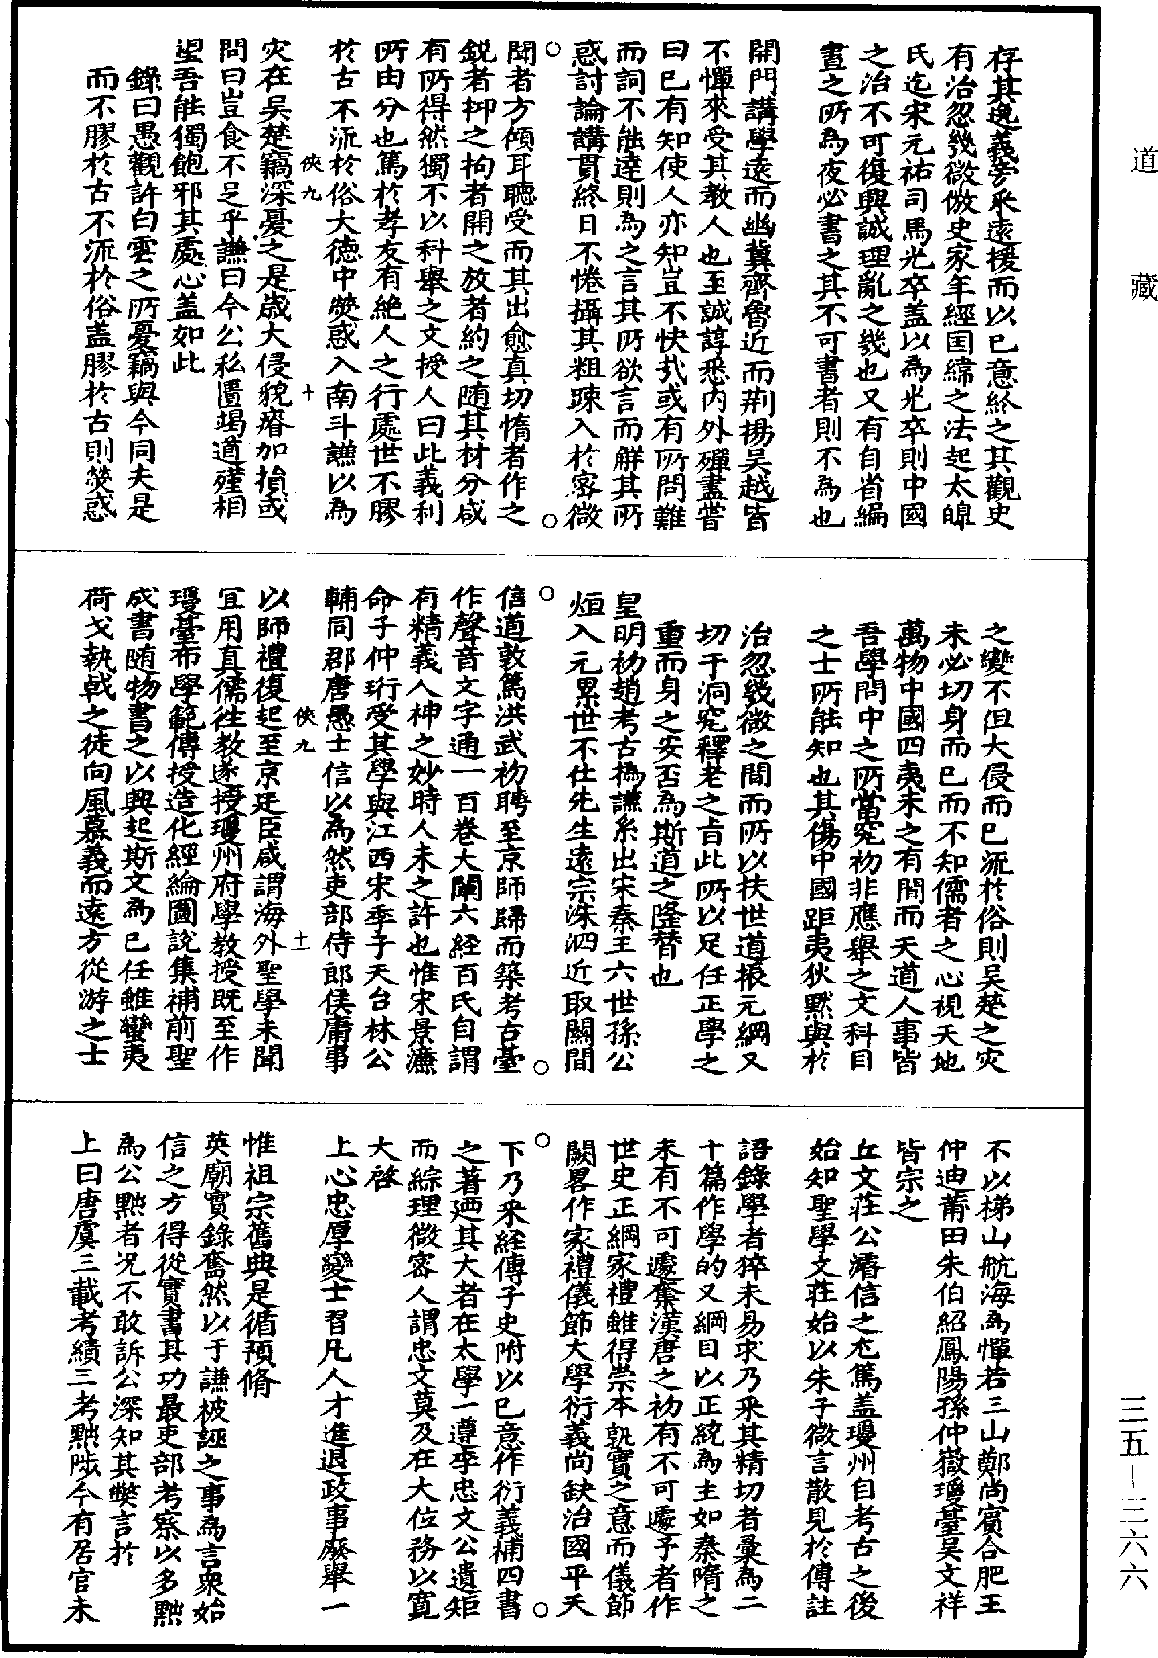 道藏
存其逸義旁采遠援而以己意終之其觀史
有治忽幾微倣史家年經国緯之法起太皡
氏迄宋元祐司馬光卒盖以為光卒則中國
之治不可復興誠理亂之幾也又有自省編
晝之所為夜必書之其不可書者則不為也
開門講學遠而幽冀齊魯近而荆揚吴越皆
不憚來受其教人也至誠諄悉内外殫盡嘗
曰已有知使人亦知豈不快㢤或有所問難
而詞不能達則為之言其所欲言而解其所
惑討論講貫終日不惓攝其粗疎入於宻微
聞者方傾耳聽受而其出愈真切惰者作之
鋭者抑之拘者開之放者約之随其材分咸
有所得然獨不以科舉之文授人曰此義利
所由分也篤於孝友有絶人之行處世不膠
於古不流於俗大德中熒惑入南斗謙以為
俠九
十
灾在吴楚竊深憂之是歲大侵貌瘠加損或
問曰豈食不足乎謙曰今公私匱竭道殣相
望吾能獨飽邪其處心盖如此
錄曰愚觀許白雲之所憂竊與今同夫是
而不膠於古不流於俗盖膠於古則熒惑
之變不但大侵而已流於俗則吴楚之灾
未必切身而已而不知儒者之心視天地
萬物中國四夷未之有間而天道人事皆
吾學問中之所當究初非應舉之文科目
之士所能知也其傷中國距夷狄黙與於
治忽幾微之間而所以扶世道振元綱又
切于洞究釋老之㫖此所以足任正學之
重而身之安否為斯道之隆替也
皇明初趙考古撝謙系出宋秦王六世孫公
烜入元累世不仕先生遠宗洙泗近取關間
信道敦篤洪武初聘至京師歸而築考古䑓
作聲音文字通一百卷大闡六経百氏自謂
有精義入神之妙時人未之許也惟宋景濂
命子仲珩受其學與江西宋季子天台林公
輔同郡唐愚士信以為然吏部侍郎侯庸事
俠九
十一
以師禮復起至京廷臣咸謂海外聖學未聞
宜用真儒徃教遂授瓊州府學教授既至作
瓊䑓布學範傳授造化經綸圖說集補前聖
成書随物書之以興起斯文為已任雖蠻夷
荷戈執戟之徒向風慕義而遠方從游之士
不以梯山航海為憚若三山鄭尚賓合肥王
仲迪莆田朱伯紹鳳陽孫仲嶽瓊䑓吴文祥
皆宗之
丘文莊公濬信之尤篤盖瓊州自考古之後
始知聖學文莊始以朱子微言散見於傳註
語錄學者猝未易求乃采其精切者彚為二
十篇作學的又綱目以正統為主如秦隋之
末有不可遽奪漢唐之初有不可遽予者作
世史正綱家禮雖得崇本執實之意而儀節
闕畧作家禮儀節大學衍義尚缺治國平天
下乃采経傳子史附以已意作衍義補四書
之著廼其大者在太學一遵李忠文公遺矩
而綜理微宻人謂忠文莫及在大位務以寬
大啓
上心忠厚變士習凡人才進退政事廢舉一
惟祖宗舊典是循預脩
英廟實錄奮然以于謙被誣之事為言衆始
信之方得從實書其功最吏部考察以多黙
為公黙者况不敢訴公深知其弊言於
上曰唐虞三載考績三考黜陟今有居官未
三五—三六六